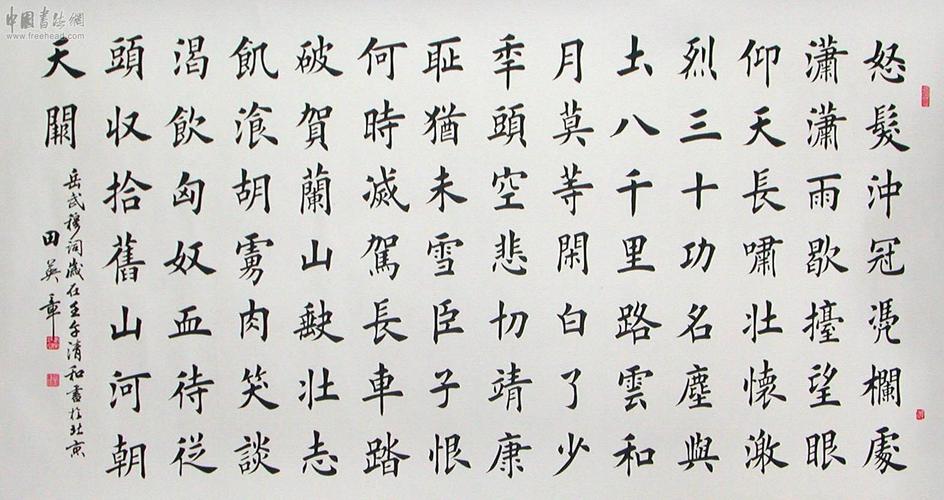 中國書法網
www.freehead.com
怒髮沖冠憑欄處
瀟瀟雨歇擡望眼
仰天長嘯壯懷激
烈三十功名塵與
土八千里路雲和
月莫等閑白了少
秊頭空悲切靖康
耻猶未雪臣子恨
何時滅駕長車踏
破賀蘭山缺壯志
飢湌胡虜肉笑談
渴飲匈奴血待從
頭收拾舊山河朝
天闕
岳武穆詞歲在壬午清和書於北京
田英章